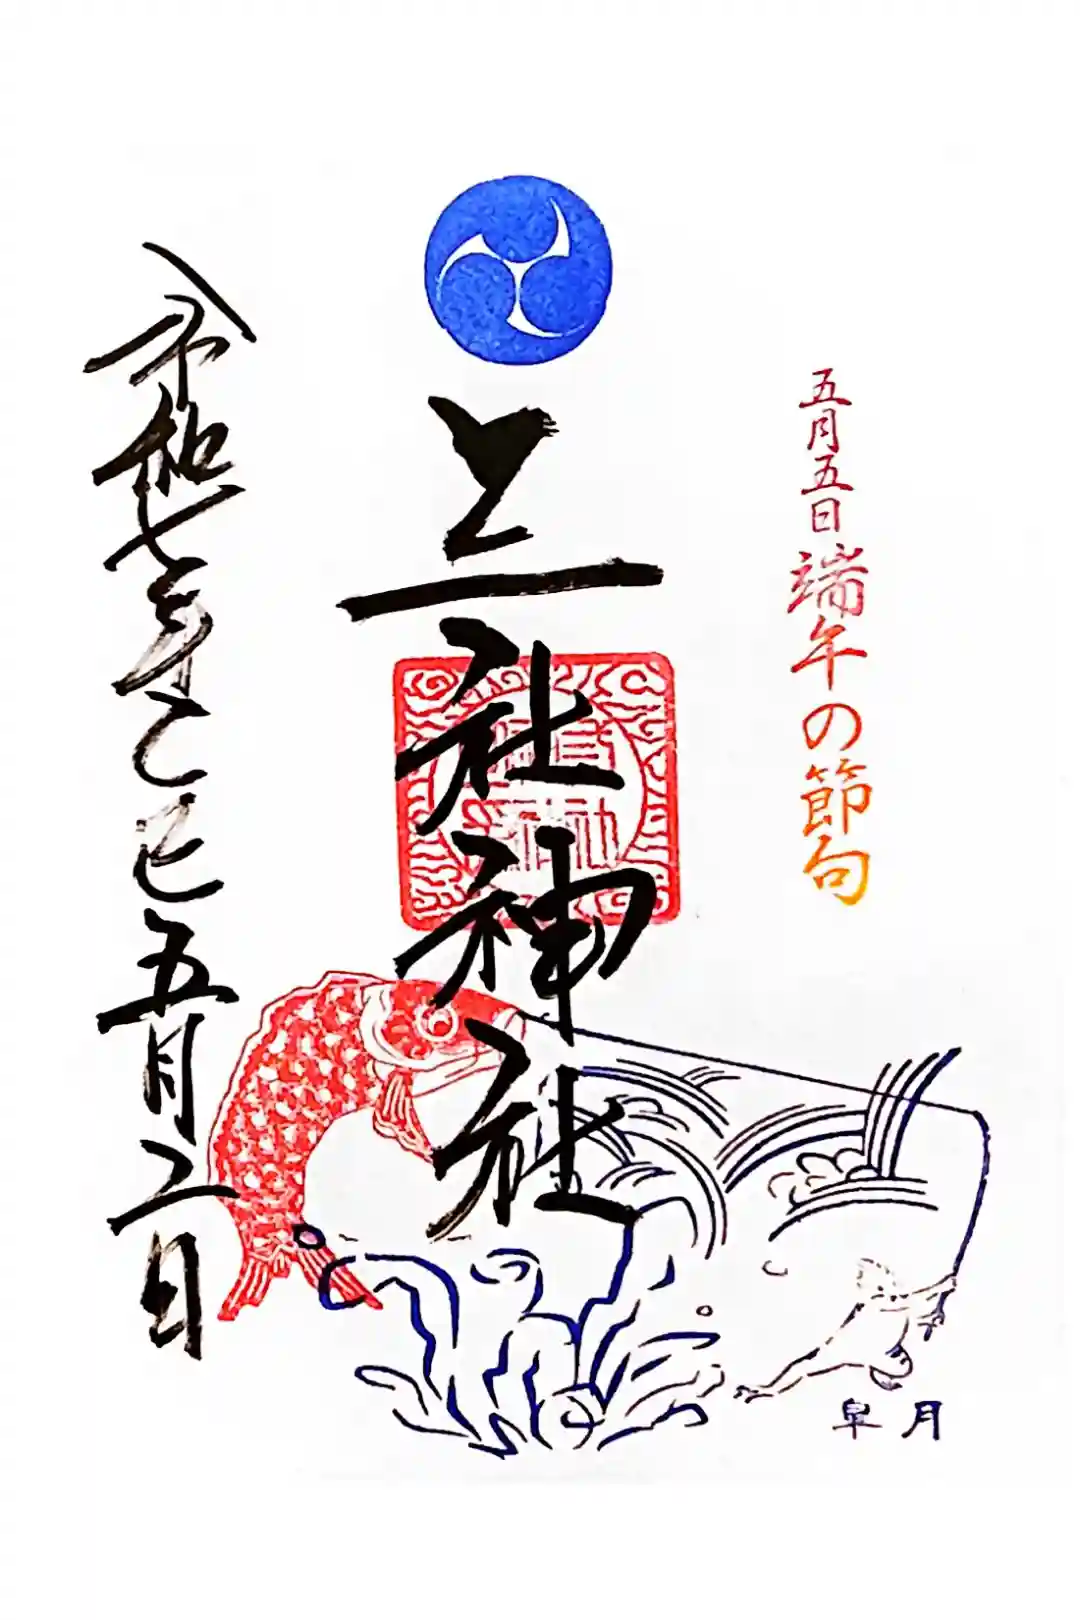 五月五日端午の節句
三社神社
令和七年乙巳五月二日
皐月